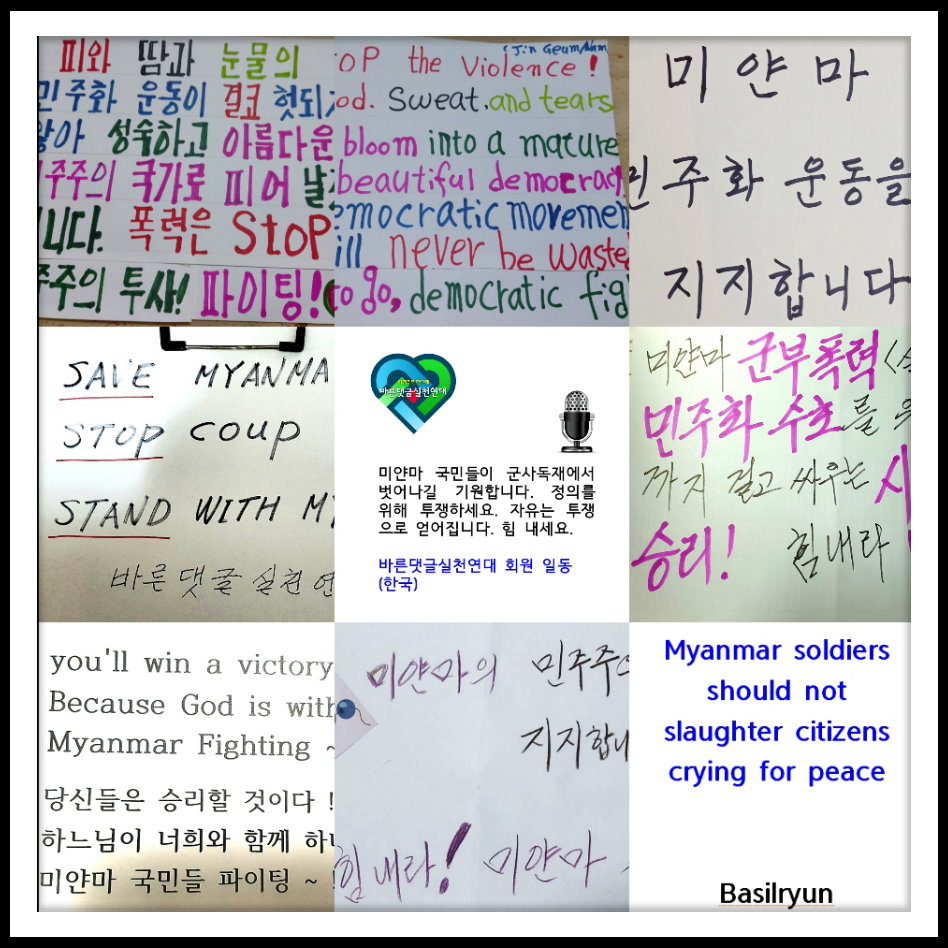 피와 땀과 눈물의
민주화 운동이 결코 헛되
않아 성숙하고 아름다운
주주의 국가로 피어 날
니다. 폭력은 Stop
주주의 투사! 파이팅!
(Jin Geum Nam
TOP the Violence!
od. Sweat. and tears
bloom into a mature
beautiful democrac
emocratic movemen
ill never be waste
to go, democratic fig
미얀마
민주화 운동을
지지합니다
SAVE MYANMA
STOP COUP
STAND WITH MY
바른댓글실천연
바른댓글실천연대
미얀마 국민들이 군사독재에서
벗어나길 기원합니다. 정의를
위해 투쟁하세요. 자유는 투쟁
으로 얻어집니다. 힘 내세요.
바른댓글실천연대 회원 일동
(한국)
미얀마 군부폭력
민주화 수호를
까지 걸고 싸우는
승리! 힘내라
you'll win a victory
Because God is with
Myanmar Fighting ~
당신들은 승리할 것이다 !
하느님이 너희와 함께 하
미얀마 국민들 파이팅 ~ !
미얀마의 민주주
지지합니
힘내라! 미얀마
Myanmar soldiers
should not
slaughter citizens
crying for peace
Basilryun